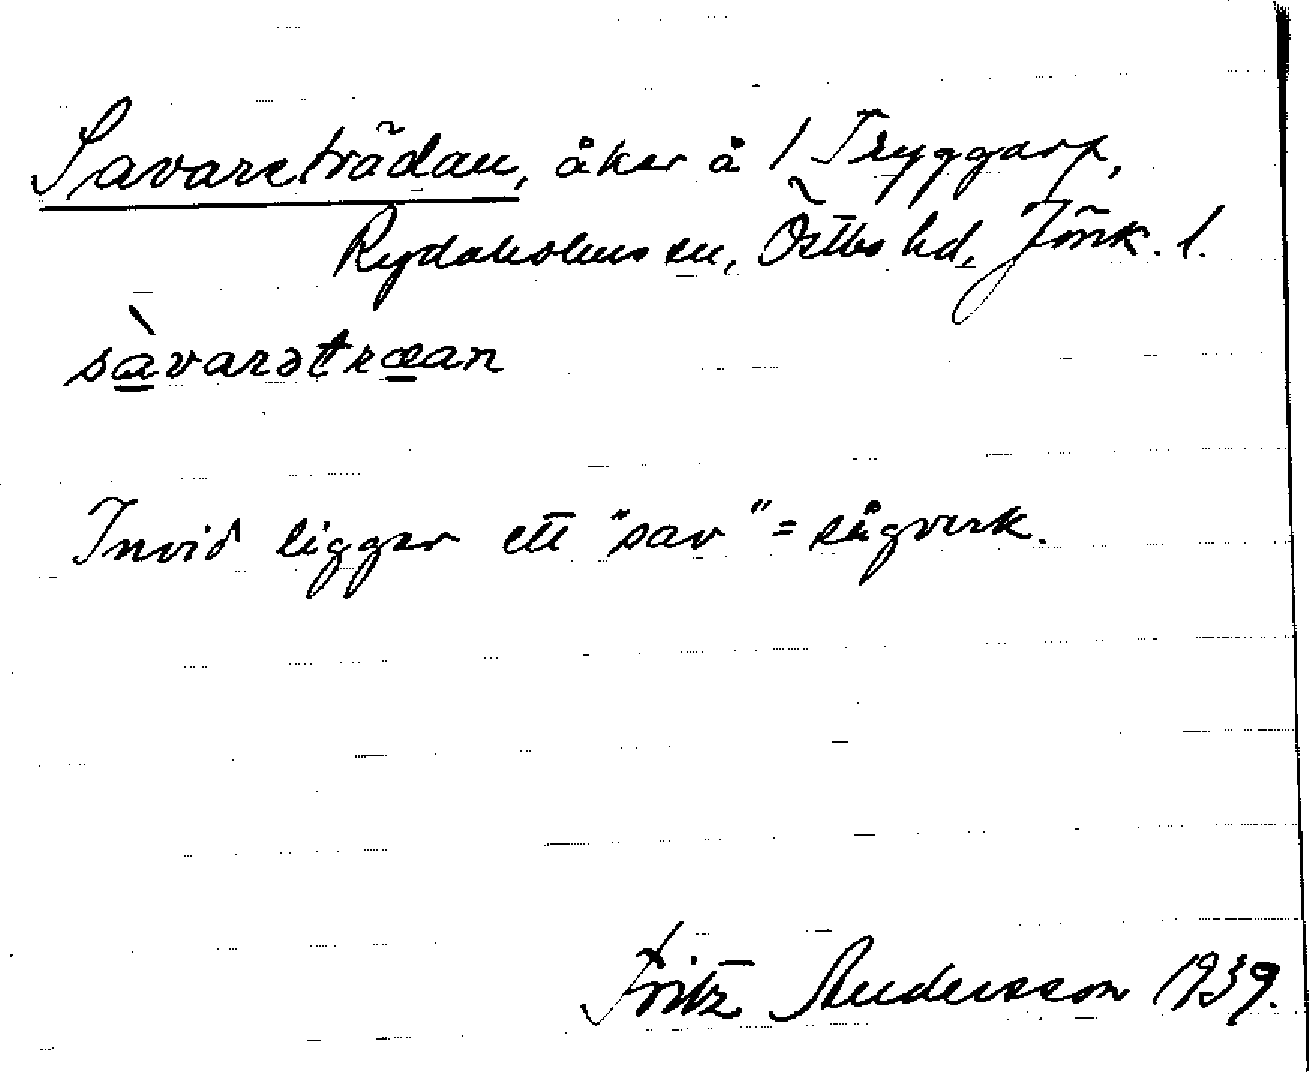 Savareträdan, åker å 1 Tryggarp,
Rydaholms sn, Östbo hd, Jönk. l.
sàvarətræan
Invid ligger ett "sav" = sågverk.
Fritz Andersson 1939.